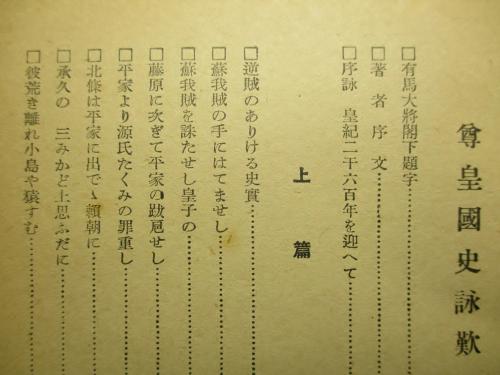 尊皇國史詠歎
□有馬大將閣下題字…………
□著者序文…………
□序詠 皇紀二千六百年を迎へて…………
上篇
□逆賊のありける史實…………
□蘇我賊の手にはてませし…………
□蘇我賊を誅たせし皇子の…………
□藤原に次ぎて平家の跋扈せし…………
□平家より源氏たくみの罪重し…………
□北條は平家に出でゝ賴朝に…………
□承久の 三みかど上思ふだに…………
□彼荒き離れ小島や猿すむ…………